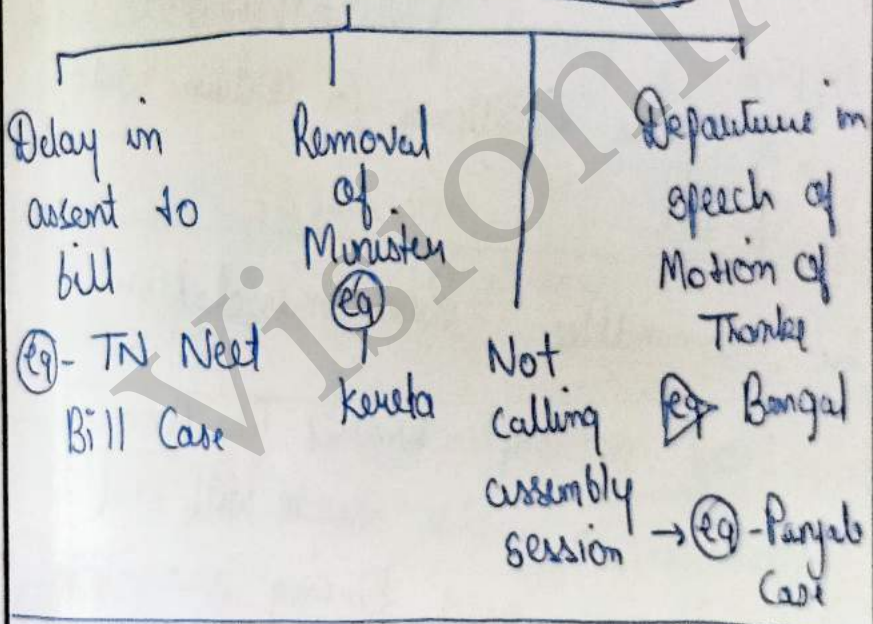 Delay in
assent to
bill
eg - TN Neet
Bill Case
Removal
of
Minister
eg
Kerela
Not
calling
assembly
session → eg - Punjab
Case
Departure in
speech of
Motion of
Thanks
eg Bengal
VisionIA